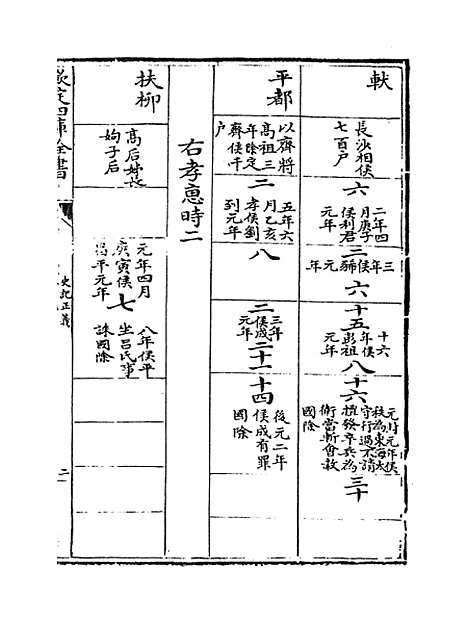 軑
長沙相侯
七百戶
六
二年四
月庚子
侯利倉
元年
三
三年侯豨元年
六
十五
十六
年侯
彭祖
元年
八
十六
元封元年侯
秩為東海太
守行過不請
擅發卒兵為
衛當斬會赦
國除
三十
平都
以齊將
高祖三
年降定
齊侯千
戶
二
五年六
月乙亥
孝侯劉
到元年
八
二
三年
侯成
元年
二十一
十四
後元二年
侯成有罪
國除
右孝惠時二
扶柳
高后姊長
姁子侯
元年四月
庚寅侯
昌平元年
七
八年侯平
坐呂氏事
誅國除
欽定四庫全書
史記正義
二